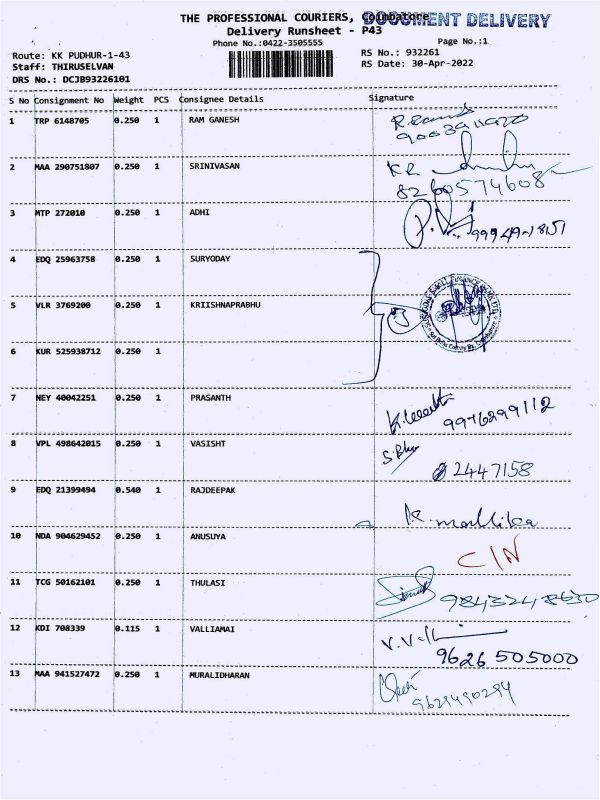 THE PROFESSIONAL COURIERS, Coimbatore
DOCUMENT DELIVERY
Delivery Runsheet - P43
Phone No.:0422-3505555
Page No.:1
Route: KK PUDHUR-1-43
RS No.: 932261
Staff: THIRUSELVAN
RS Date: 30-Apr-2022
DRS No.: DCJB93226101
S No Consignment No Weight PCS Consignee Details Signature
1 TRP 6148705 0.250 1 RAM GANESH
2 MAA 290751807 0.250 1 SRINIVASAN
8260574608
3 MTP 272010 0.250 1 ADHI
4 EDQ 25963758 0.250 1 SURYODAY
5 VLR 3769200 0.250 1 KRIISHNAPRABHU
3
6 KUR 525938712 0.250 1
7 NEY 40042251 0.250 1 PRASANTH
9976299112
8 VPL 498642015 0.250 1 VASISHT
2447158
9 EDQ 21399494 0.540 1 RAJDEEPAK
K. mallika
10 NDA 904629452 0.250 1 ANUSUYA
C/N
11 TCG 50162101 0.250 1 THULASI
9843248630
12 KDI 708339 0.115 1 VALLIAMAI
V. Valli
9626505000
13 MAA 941527472 0.250 1 MURALIDHARAN
9629490294